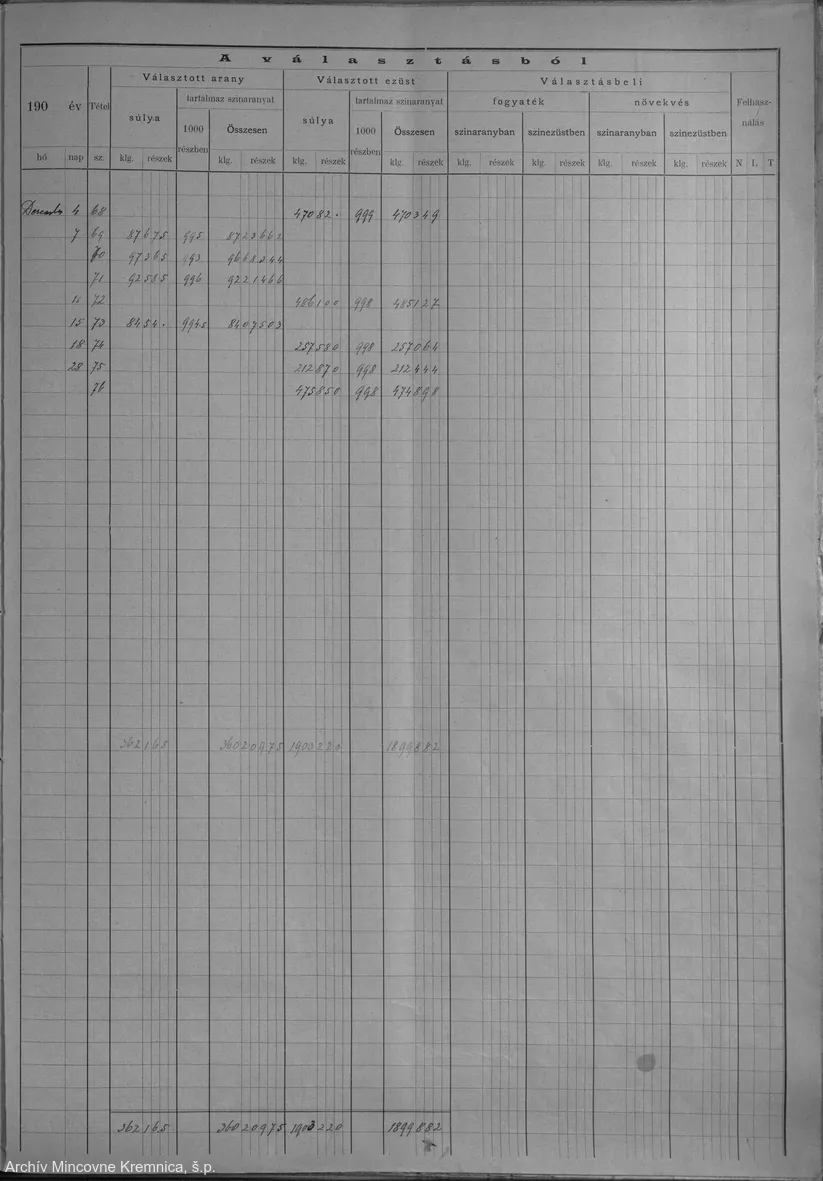 A választásból
Választott arany Választott ezüst Választásbeli
190 év Tétel súlya tartalmaz színaranyat súlya tartalmaz színaranyat fogyaték növekvés Felhasz-
nálás
1000 részben Összesen 1000 részben Összesen színaranyban színezüstben színaranyban színezüstben
hó nap sz. klg. részek klg. részek klg. részek klg. részek klg. részek klg. részek klg. részek klg. részek N L T
4 68 47082. 999 470349
7 69 87675 995 8723662
70 97365 993 9668344
71 92585 996 9221466
11 72 486100 998 485127
15 73 8454. 9945 8407503
18 74 257580 998 257064
28 75 212870 998 212444
76 475850 998 474898
362165 36020975 1903220 1899882
362165 36020975 1903220 1899882
Archív Mincovne Kremnica, š.p.